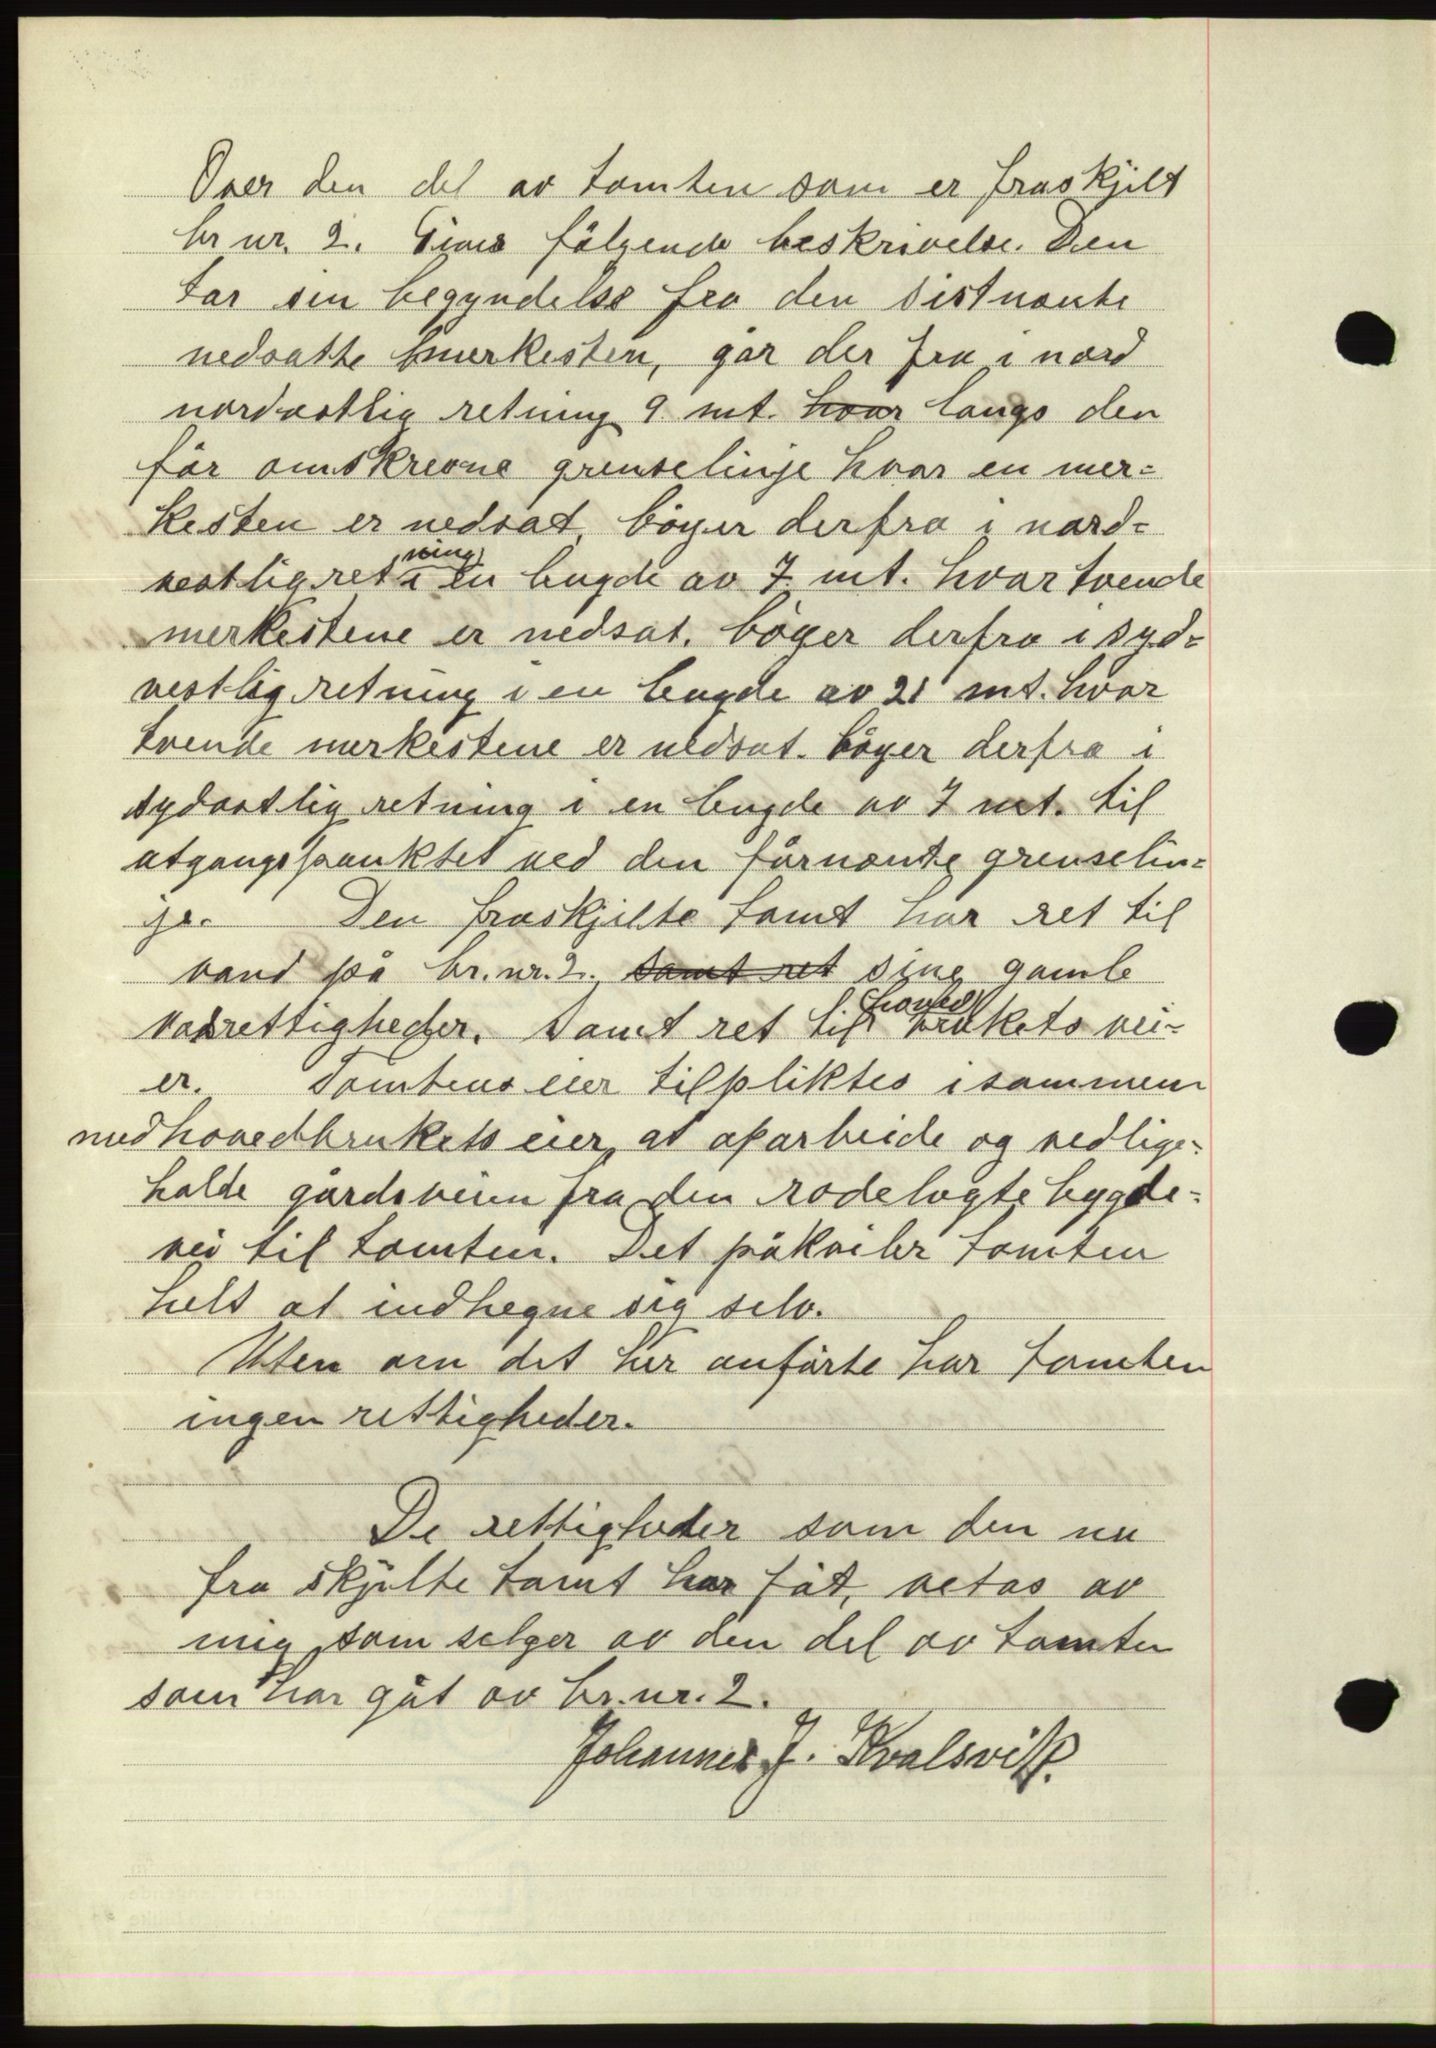 Over den del av tomten som er fraskjilt
br nr. 2. Gives følgende beskrivelse. Den
tar sin begyndelse fra den sistnævnte
nedsatte merkesten, går der fra i nord
nordostlig retning 9 mt. hvor langs den
før omskrevne grenselinje hvor en mer=
kesten er nedsat, bøyer derfra i nord=
vestlig retning i en bugde av 7 mt. hvor tvende
merkestene er nedsat. bøyer derfra i syd=
vestlig retning i en bugde av 21 mt. hvor
tvende merkestene er nedsat. bøyer derfra i
sydostlig retning i en bugde av 7 mt. til
utgangspunktet ved den førnevnte grenselin=
je. Den fraskjilte tomt har ret til
vand på br. nr. 2. samt ret sine gamle
rettigheder. Samt ret til hoved brukets vei=
er. Tomtens eier tilpliktes i sammen
med hovedbrukets eier, at oparbeide og vedlige=
holde gårdsveien fra den rodelagte bygde=
vei til tomten. Det påkviler tomten
helt at indhegne sig selv.
Uten om det her anførte har tomten
ingen rettigheder.
De rettigheder som den nu
fra skjilte tomt har fåt, vetas av
mig som selger av den del av tomten
som har gåt av br. nr. 2.
Johannes J. Kvalsvik.